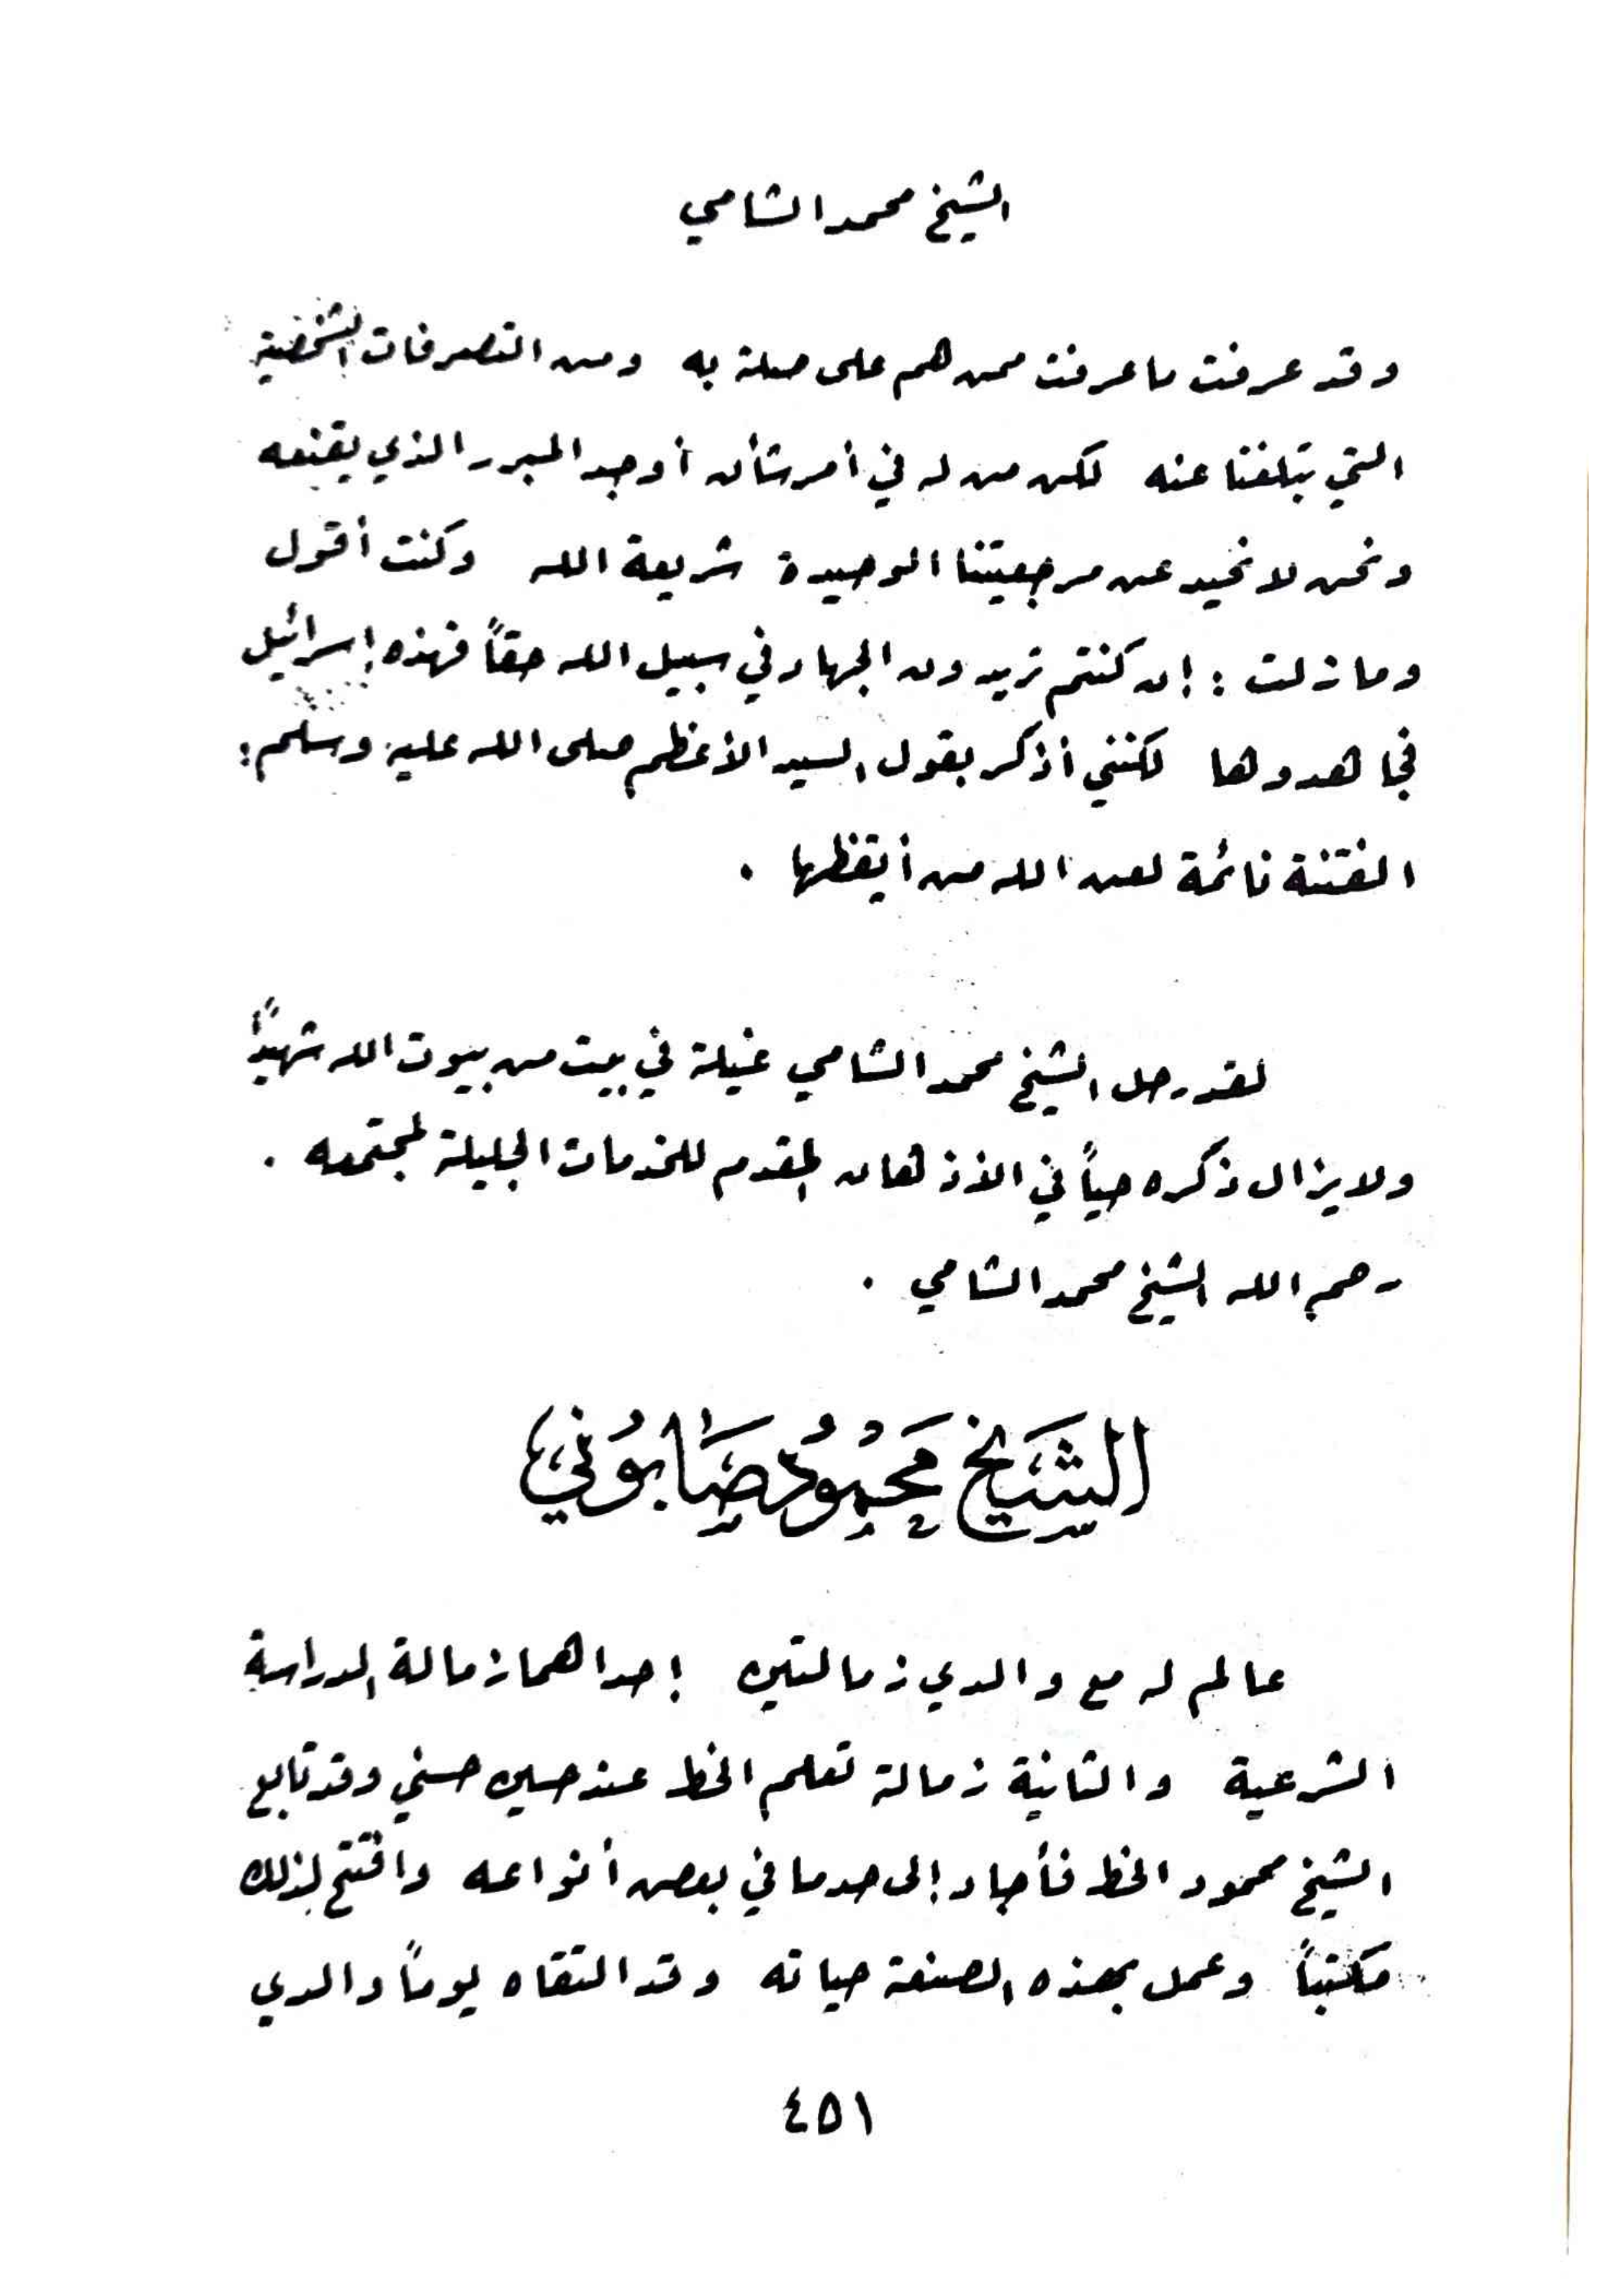 الشيخ محمد الشامي
وقد عرفت ما عرفت ممن هم على صلة به ومن التصرفات الشخصية
التي تبلغنا عنه لكن من له في أمر شأن أوجد المبرر الذي يقنعه
ونحن لا نحيد عن مرجعيتنا الوحيدة شريعة الله وكنت أقول
وما زلت : إن كنتم تريدون الجهاد في سبيل الله حقاً فهذه إسرائيل
فجاهدوها لكنني أذكر بقول السيد الأعظم صلى الله عليه وسلم :
الفتنة نائمة لعن الله من أيقظها .
لقد رحل الشيخ محمد الشامي غيلة في بيت من بيوت الله شهيداً
ولا يزال ذكره حياً في الأذهان المقدم للخدمات الجليلة لمجتمعه .
رحم الله الشيخ محمد الشامي .
الشَيخ مَحْمُود صَابُوني
عالم له مع والدي زمالتين إحداهما زمالة الدراسة
الشرعية والثانية زمالة تعلم الخط عند حسين حسني وقد تابع
الشيخ محمود الخط فأجاد إلى حد ما في بعض أنواعه وافتتح لذلك
مكتباً وعمل بهذه الصنعة حياته وقد التقاه يوماً والدي
٤٥١